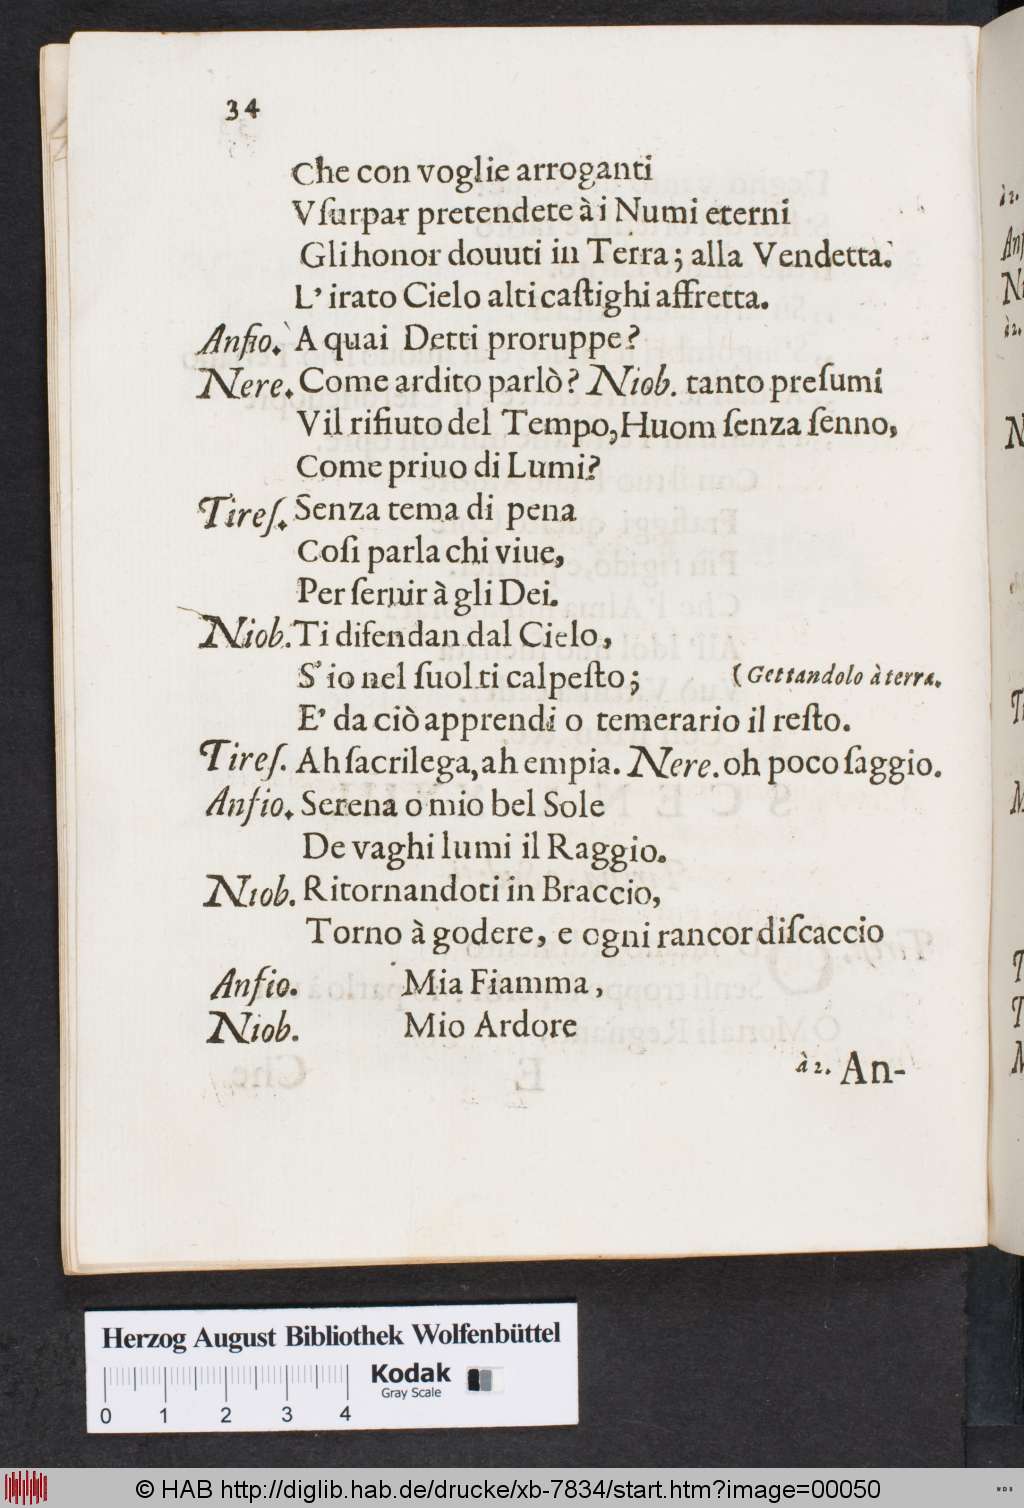 34
Che con voglie arroganti
Vſurpar pretendete à i Numi eterni
Gli honor douuti in Terra; alla Vendetta.
L' irato Cielo alti caſtighi affretta.
Anfio. A quai Detti proruppe?
Nere. Come ardito parlò? Niob. tanto preſumi
Vil rifiuto del Tempo, Huom ſenza ſenno,
Come priuo di Lumi?
Tireſ. Senza tema di pena
Coſi parla chi viue,
Per ſeruir à gli Dei.
Niob. Ti difendan dal Cielo,
S' io nel ſuol ti calpeſto; (Gettandolo à terra.
E' da ciò apprendi o temerario il reſto.
Tireſ. Ah ſacrilega, ah empia. Nere. oh poco ſaggio.
Anfio. Serena o mio bel Sole
De vaghi lumi il Raggio.
Niob. Ritornandoti in Braccio,
Torno à godere, e ogni rancor diſcaccio
Anfio. Mia Fiamma,
Niob. Mio Ardore
à 2. An-
Herzog August Bibliothek Wolfenbüttel
0 1 2 3 4
Kodak
Gray Scale
© HAB http://diglib.hab.de/drucke/xb-7834/start.htm?image=00050